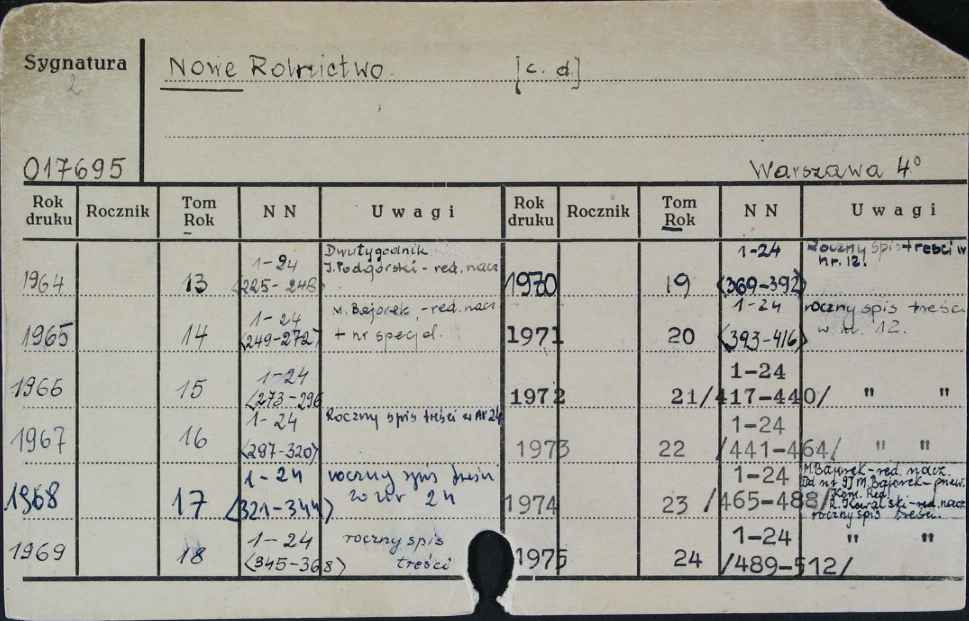 Sygnatura
2
Nowe Rolnictwo. [c. d.]
017695
Warszawa 4°
Rok druku Rocznik Tom Rok N N Uwagi Rok druku Rocznik Tom Rok N N Uwagi
1964 13 1-24 (225-248) Dwutygodnik J. Podgórski - red. nacz.
1965 14 1-24 (249-272) M. Bajorek - red. nacz + nr specjal.
1966 15 1-24 (273-296
1967 16 1-24 (297-320) Roczny spis treści w Nr 24
1968 17 1-24 (321-344) roczny spis treści w nr 24
1969 18 1-24 (345-368) roczny spis treści
1970 19 1-24 (369-392) Roczny spis treści w nr. 12.
1971 20 1-24 (393-416) roczny spis treści w nr. 12.
1972 21 1-24 /417-440/ " "
1973 22 1-24 /441-464/ " "
1974 23 1-24 /465-488/ M. Bajorek - red. nacz. Od nr 9 M. Bajorek - Kom. Red. R. Kowalski - red. nacz roczny spis treści.
1975 24 1-24 /489-512/ " "